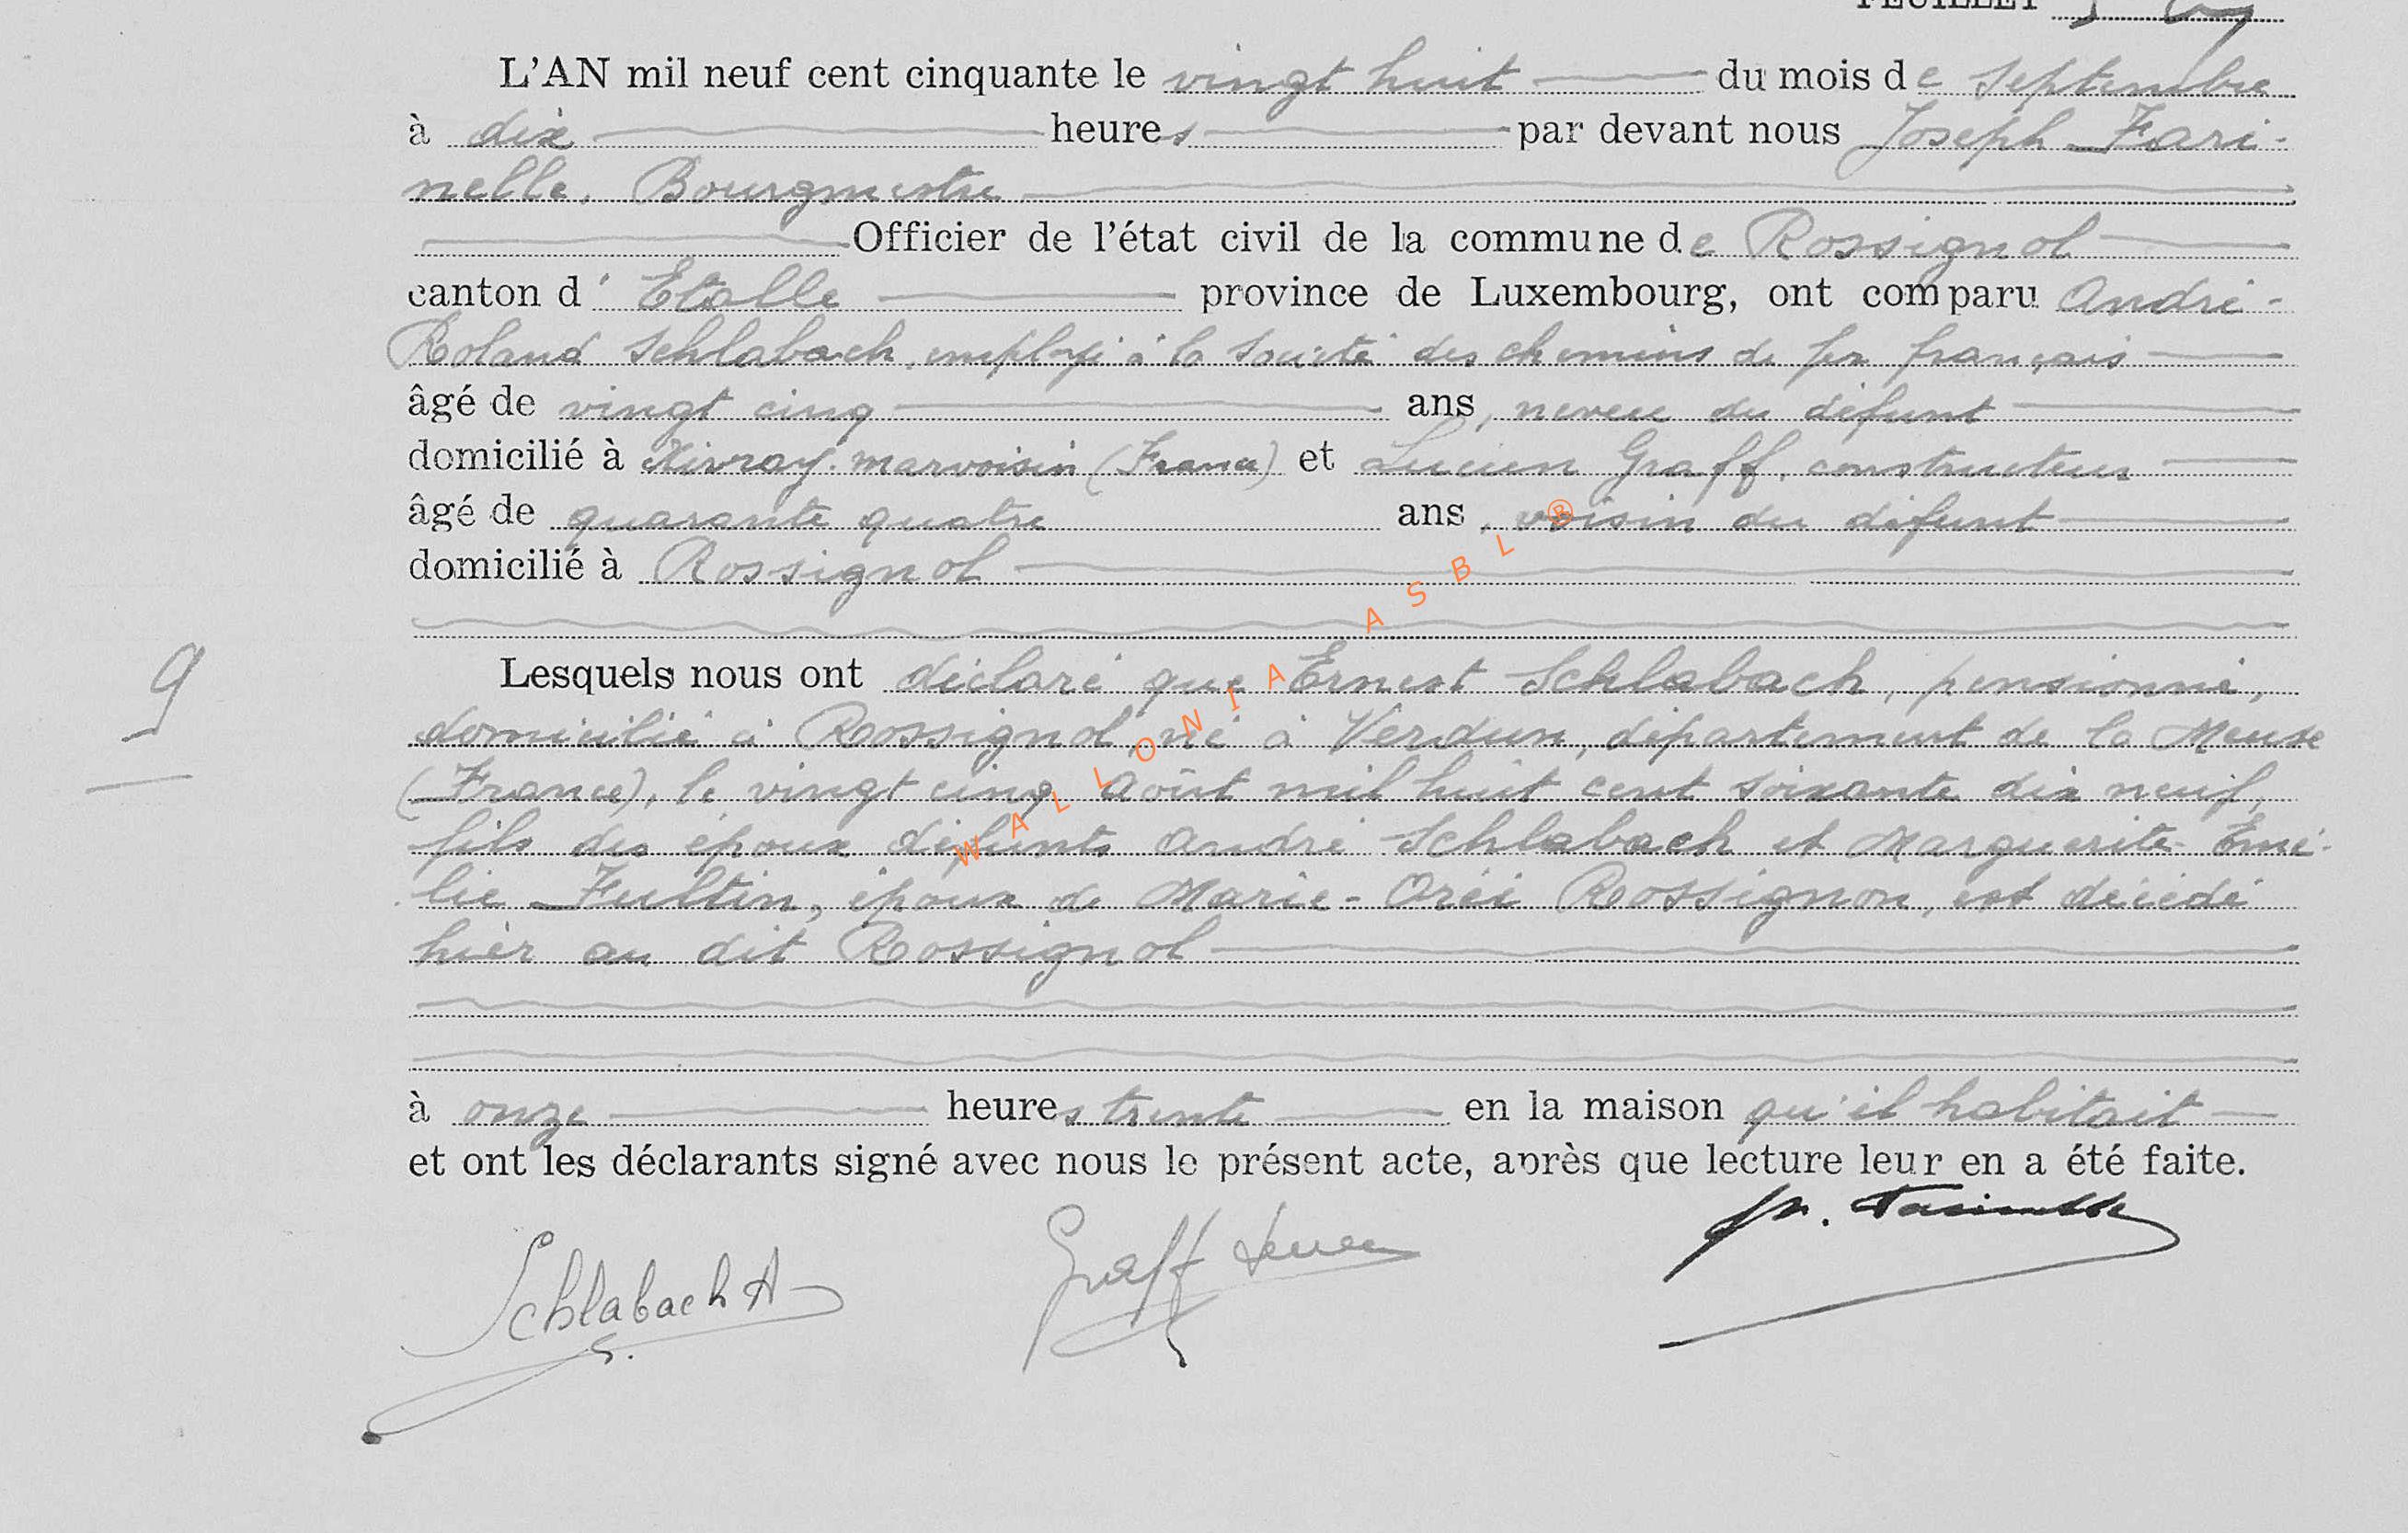 FEUILLET
L'AN mil neuf cent cinquante le vingt huit du mois de septembre
à dix heures par devant nous Joseph Fari-
nelle, Bourgmestre
Officier de l'état civil de la commune de Rossignol
canton d'Etalle province de Luxembourg, ont comparu André-
Roland Schlabach, employé à la Société des chemins de fer français
âgé de vingt cinq ans, neveu du défunt
domicilié à Xivray-marvoisin (France) et Lucien Graff, constructeur
âgé de quarante quatre ans, voisin du défunt
domicilié à Rossignol
9
Lesquels nous ont déclaré que Ernest Schlabach, pensionné,
domicilié à Rossignol, né à Verdun, département de la Meuse
(France), le vingt cinq Août mil huit cent soixante dix neuf,
fils des époux défunts André Schlabach et Marguerite-Emé-
lie Fultin, époux de Marie-Oréé Rossignon, est décédé
hier au dit Rossignol
à onze heures trente en la maison qu'il habitait
et ont les déclarants signé avec nous le présent acte, après que lecture leur en a été faite.
Schlabach A Graff Lucien Farinelle
WALLONIA ASBL ®